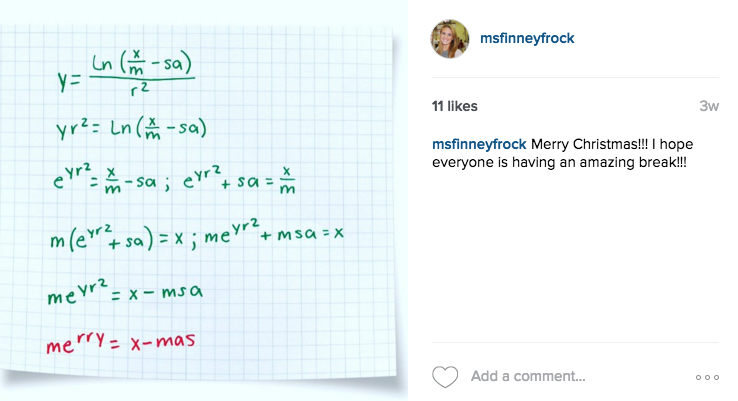 y = ln(x/m - sa) / r²
yr² = ln(x/m - sa)
e^yr² = x/m - sa ; e^yr² + sa = x/m
m(e^yr² + sa) = x ; me^yr² + msa = x
me^yr² = x - msa
me^rry = x-mas
msfinneyfrock
11 likes
3w
msfinneyfrock Merry Christmas!!! I hope
everyone is having an amazing break!!!
Add a comment...